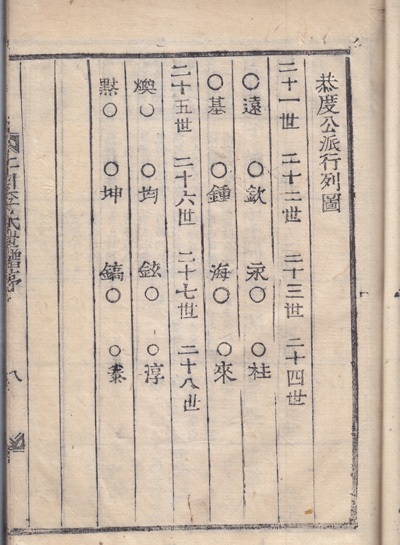 恭度公派行列圖
二十一世 二十二世 二十三世 二十四世
○遠 ○欽 永○ ○柱
○基 ○鍾 海○ ○來
二十五世 二十六世 二十七世 二十八世
○ ○均 鉉○ ○淳
○ ○坤 鎬○ ○
李氏世譜序
八